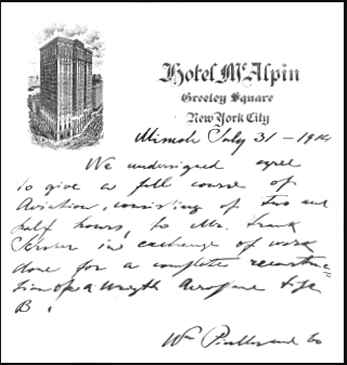 Hotel McAlpin
Greeley Square
New York City
July 31 – 1914
We undersigned agree
to give a full course of
Aviation, consisting of two and
half hours, to Mr. Frank
in exchange of work
done for a complete reconstruc-
tion of a Wright Aeroplane type
B.
Wm Piceller and Co